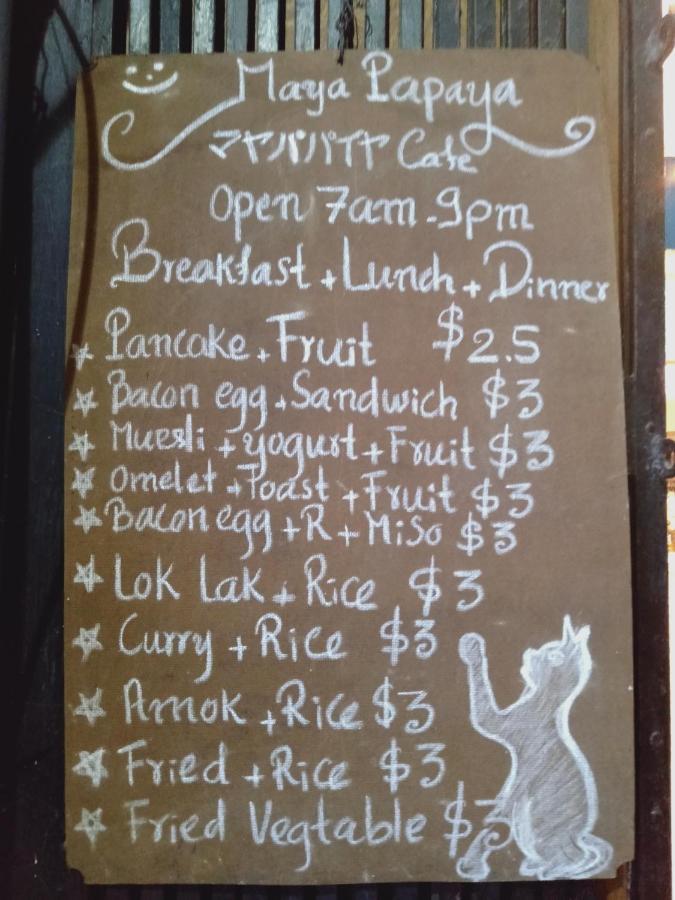 Maya Papaya
マヤパパイヤ Cafe
Open 7am-9pm
Breakfast + Lunch + Dinner
Pancake + Fruit $2.5
Bacon egg + Sandwich $3
Muesli + yogurt + Fruit $3
Omelet + Toast + Fruit $3
Bacon egg + R + Miso $3
Lok Lak + Rice $3
Curry + Rice $3
Amok + Rice $3
Fried + Rice $3
Fried Vegtable $3